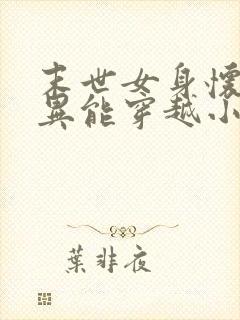 末世女身懷
異能穿越小
葉非夜